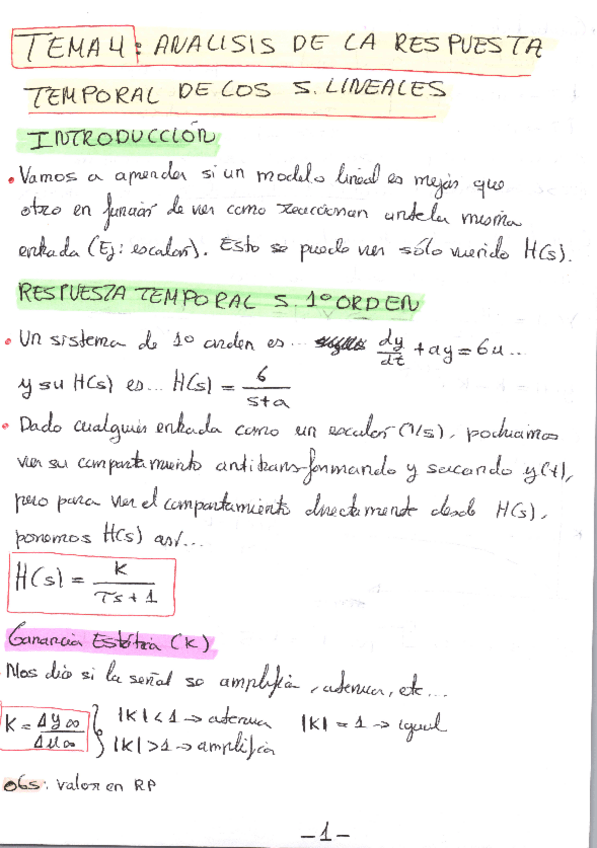 TEMA 4: ANALISIS DE LA RESPUESTA
TEMPORAL DE LOS S. LINEALES
INTRODUCCIÓN
• Vamos a aprender si un modelo lineal es mejor que
otro en función de ver como reaccionan ante la misma
entrada (Ej: escalón). Esto se puede ver sólo viendo H(s).
RESPUESTA TEMPORAL S. 1º ORDEN
• Un sistema de 1º orden es... dy/dt + ay = 6u...
y su H(s) es... H(s) = 6/(s+a)
• Dado cualquier entrada como un escalón (1/s), podriamos
ver su comportamiento antitransformando y sacando y(t),
pero para ver el comportamiento directamente desde H(s),
ponemos H(s) así...
H(s) = K/(τs + 1)
Ganancia Estática (K)
Nos dice si la señal se amplifica, atenua, etc...
K = Δy∞/Δu∞ } |K| < 1 → atenua |K| = 1 → igual
|K| > 1 → amplifica
Obs: valor en RP
-1-